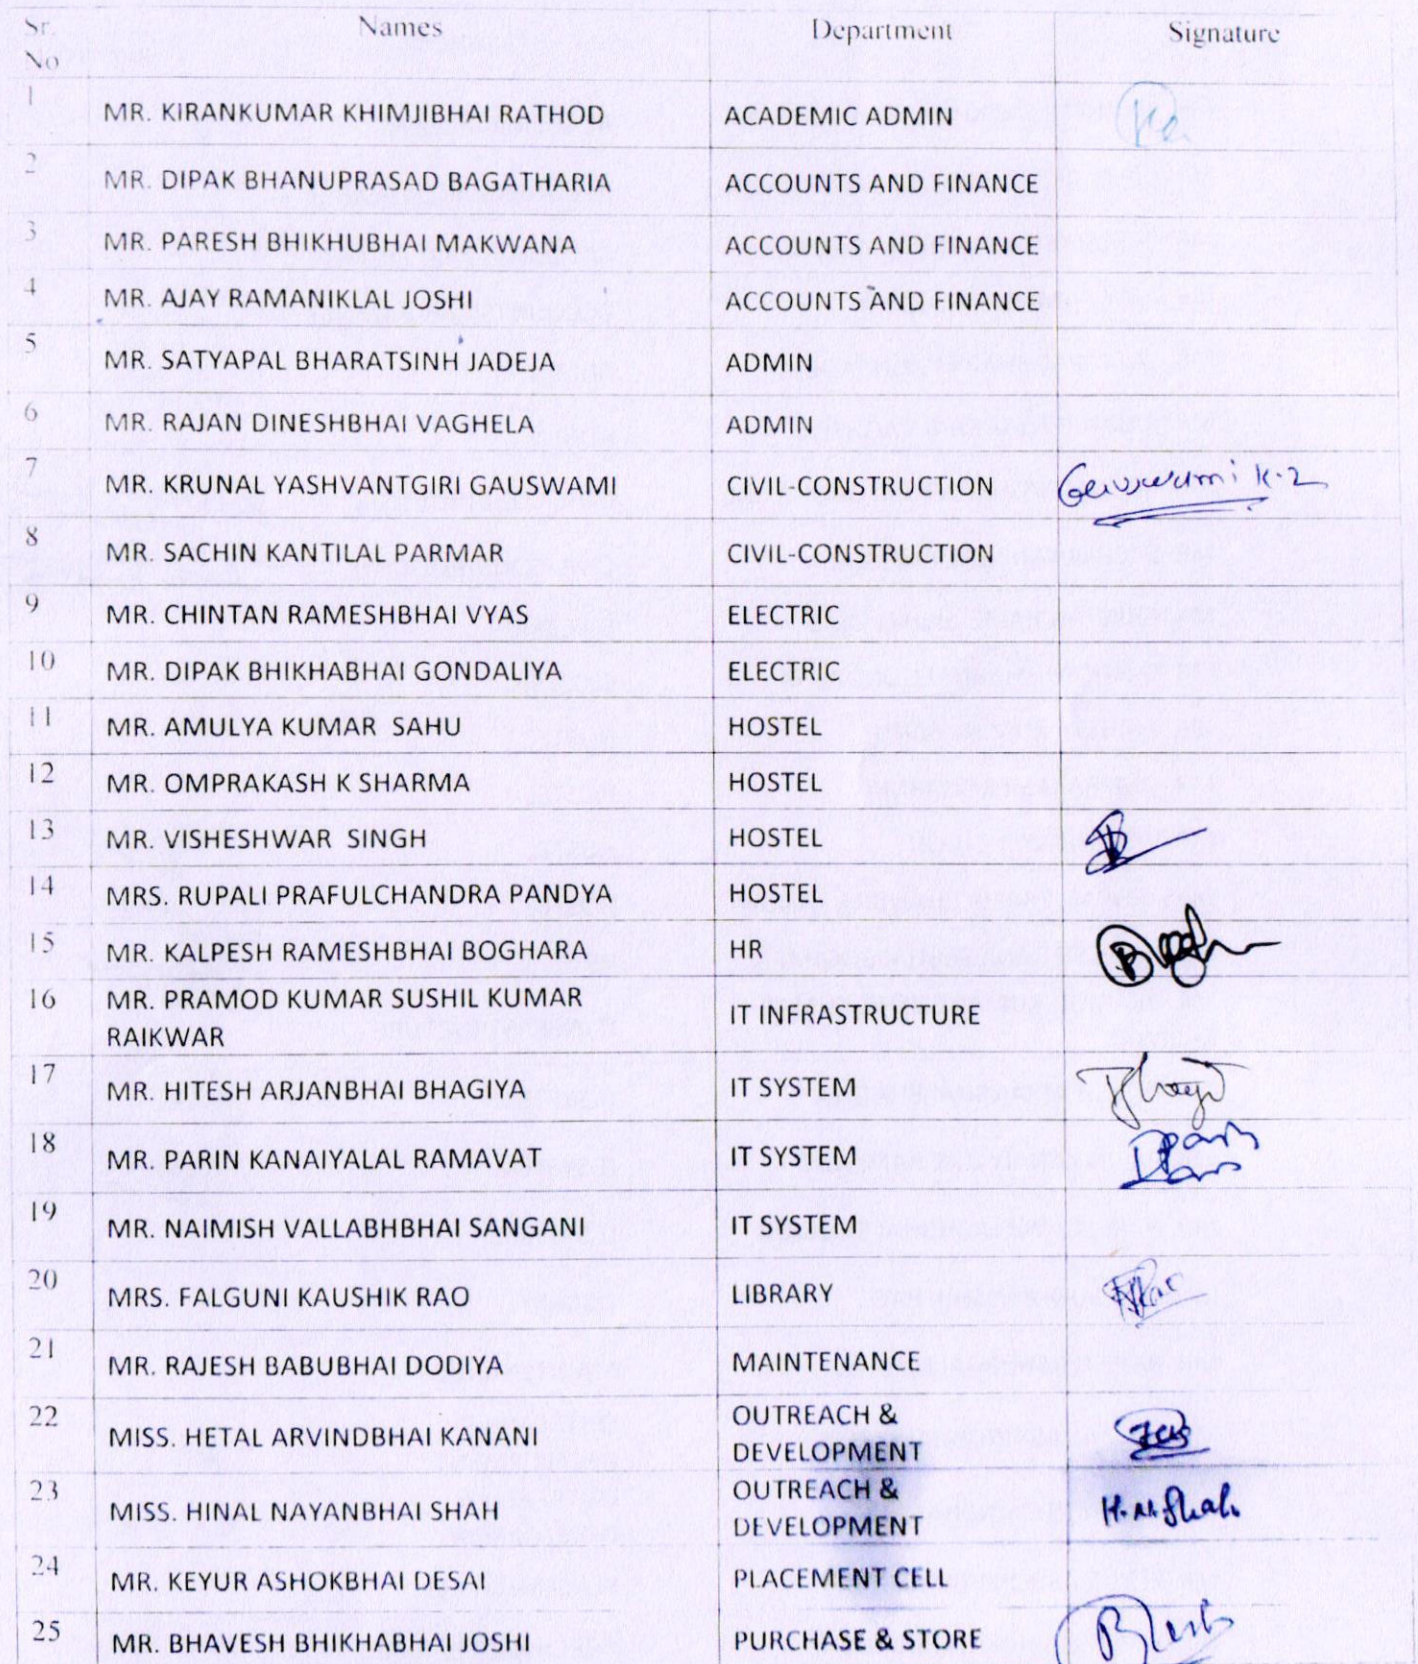 Sr. No Names Department Signature
1 MR. KIRANKUMAR KHIMJIBHAI RATHOD ACADEMIC ADMIN
2 MR. DIPAK BHANUPRASAD BAGATHARIA ACCOUNTS AND FINANCE
3 MR. PARESH BHIKHUBHAI MAKWANA ACCOUNTS AND FINANCE
4 MR. AJAY RAMANIKLAL JOSHI ACCOUNTS AND FINANCE
5 MR. SATYAPAL BHARATSINH JADEJA ADMIN
6 MR. RAJAN DINESHBHAI VAGHELA ADMIN
7 MR. KRUNAL YASHVANTGIRI GAUSWAMI CIVIL-CONSTRUCTION
8 MR. SACHIN KANTILAL PARMAR CIVIL-CONSTRUCTION
9 MR. CHINTAN RAMESHBHAI VYAS ELECTRIC
10 MR. DIPAK BHIKHABHAI GONDALIYA ELECTRIC
11 MR. AMULYA KUMAR SAHU HOSTEL
12 MR. OMPRAKASH K SHARMA HOSTEL
13 MR. VISHESHWAR SINGH HOSTEL
14 MRS. RUPALI PRAFULCHANDRA PANDYA HOSTEL
15 MR. KALPESH RAMESHBHAI BOGHARA HR
16 MR. PRAMOD KUMAR SUSHIL KUMAR
RAIKWAR IT INFRASTRUCTURE
17 MR. HITESH ARJANBHAI BHAGIYA IT SYSTEM
18 MR. PARIN KANAIYALAL RAMAVAT IT SYSTEM
19 MR. NAIMISH VALLABHBHAI SANGANI IT SYSTEM
20 MRS. FALGUNI KAUSHIK RAO LIBRARY
21 MR. RAJESH BABUBHAI DODIYA MAINTENANCE
22 MISS. HETAL ARVINDBHAI KANANI OUTREACH &
DEVELOPMENT
23 MISS. HINAL NAYANBHAI SHAH OUTREACH &
DEVELOPMENT H.N.Shah.
24 MR. KEYUR ASHOKBHAI DESAI PLACEMENT CELL
25 MR. BHAVESH BHIKHABHAI JOSHI PURCHASE & STORE